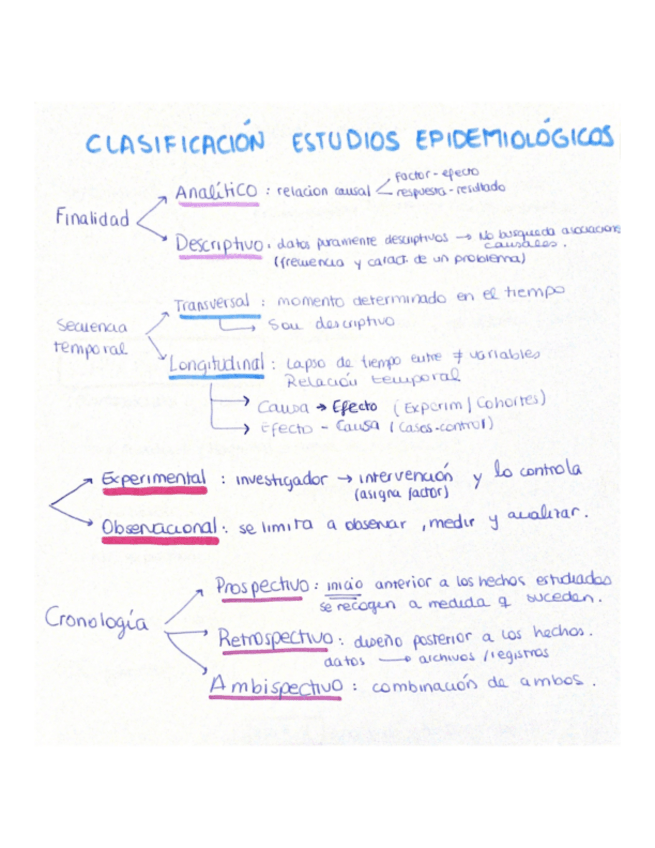 CLASIFICACIÓN ESTUDIOS EPIDEMIOLÓGICOS
Finalidad
Analítico : relacion causal
factor - efecto
respuesta - resultado
Descriptivo : datos puramente descriptivos → No busqueda asociaciones
causales.
(frecuencia y caract. de un problema)
Secuencia
temporal
Transversal : momento determinado en el tiempo
→ Son descriptivo
Longitudinal : Lapso de tiempo entre ≠ variables
Relación temporal
→ Causa → Efecto (Experim / Cohortes)
→ Efecto - Causa (Cases-control)
Experimental : investigador → intervención y lo controla
(asigna factor)
Observacional : se limita a observar, medir y analizar.
Cronología
Prospectivo : inicio anterior a los hechos estudiados
se recogen a medida q suceden.
Retrospectivo : diseño posterior a los hechos.
datos → archivos / registros
Ambispectivo : combinación de ambos.